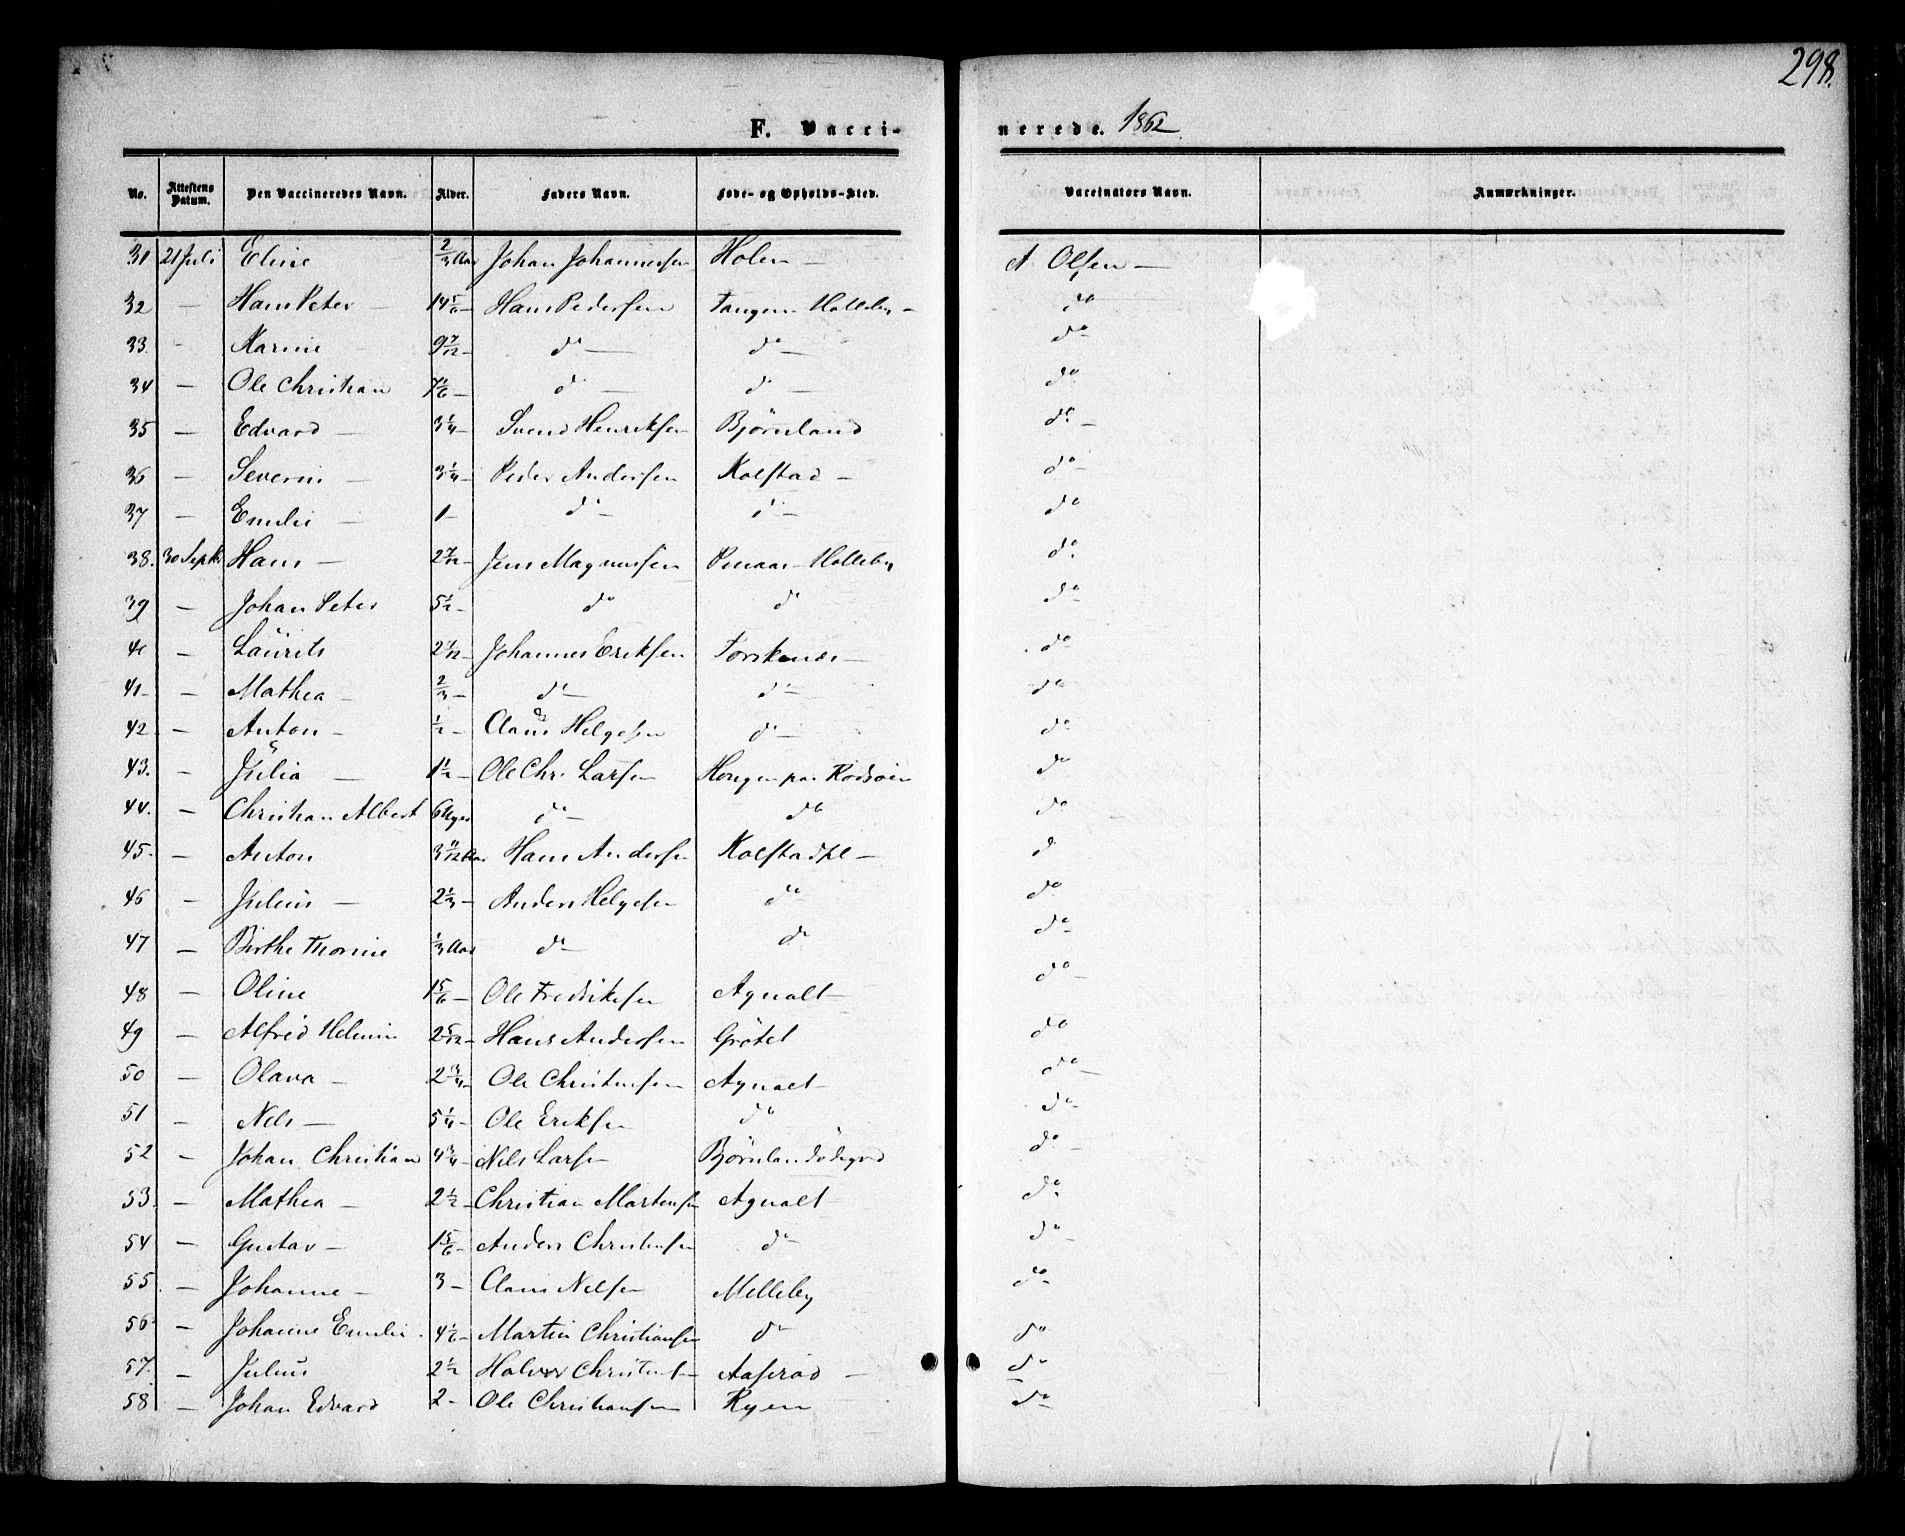 298.
F. Vaccinerede. 1862
No. Attestens Datum. Den Vaccineredes Navn. Alder. Faders Navn. Føde- og Opholds-Sted. Vaccinators Navn. Anmærkninger.
31 21 Juli Eline 2/3 Aar Johan Johannessen Holen — A Olsen —
32 — Hans Peter — 14 5/6 — Hans Pedersen Tangen Holleby — do
33. - Karine 9 7/12 — do — do — do
34 — Ole Christian 7 /6 — d — d — do
35 — Edvard — 3 1/4 — Svend Henriksen Bjørnland do —
36 — Severin — 3 1/4 — Peder Andersen Kolstad — do
37 — Emilie — 1 — do d — do
38. 30 Sept. Hans — 2 7/12 — Jens Magnussen Holleby do
39 — Johan Peter 5 1/2 — do do do
40 — Laurits 2 /12 — Johannes Eriksen Torsknæs — do
41 — Mathea — 2/3 — do do do
42 — Anton — 1/2 — Claus Helgesen do — do
43. — Julia — 1 1/2 — Ole Chr. Larsen Haugen paa Rødsøen do
44. — Christian Albert 6 Uger do — do do
45. — Anton 3 11/12 Aar Hans Andersen Kolstadpl — d
46 — Julius — 2 1/3 — Anders Helgesen do do
47 — Birthe Thorine 1/3 Aar do do do
48 — Oline 1 5/6 — Ole Fredriksen Agnalt — do —
49 — Alfred Helenius 2 5/12 — Hans Andersen Grøtet do
50 — Olava — 2 3/4 — Ole Christensen Agnalt — do —
51 — Nels — 5 1/4 — Ole Eriksen do do
52 — Johan Christian 4 3/4 — Nels Larsen Bjørnlandødegrd do —
53. — Mathea — 2 1/2 — Christian Martensen Agnalt — do
54 — Gustav — 1 5/6 — Anders Christensen do do —
55. — Johanne — 3 — Claus Nelsen Melleby do
56. — Johanne Emilie. 4 1/6 — Martin Christiansen do do
57. — Julius 2 1/2 Halvor Christensen Aaserød — do
58 — Johan Edvard 2 — Ole Christiansen Ryen do